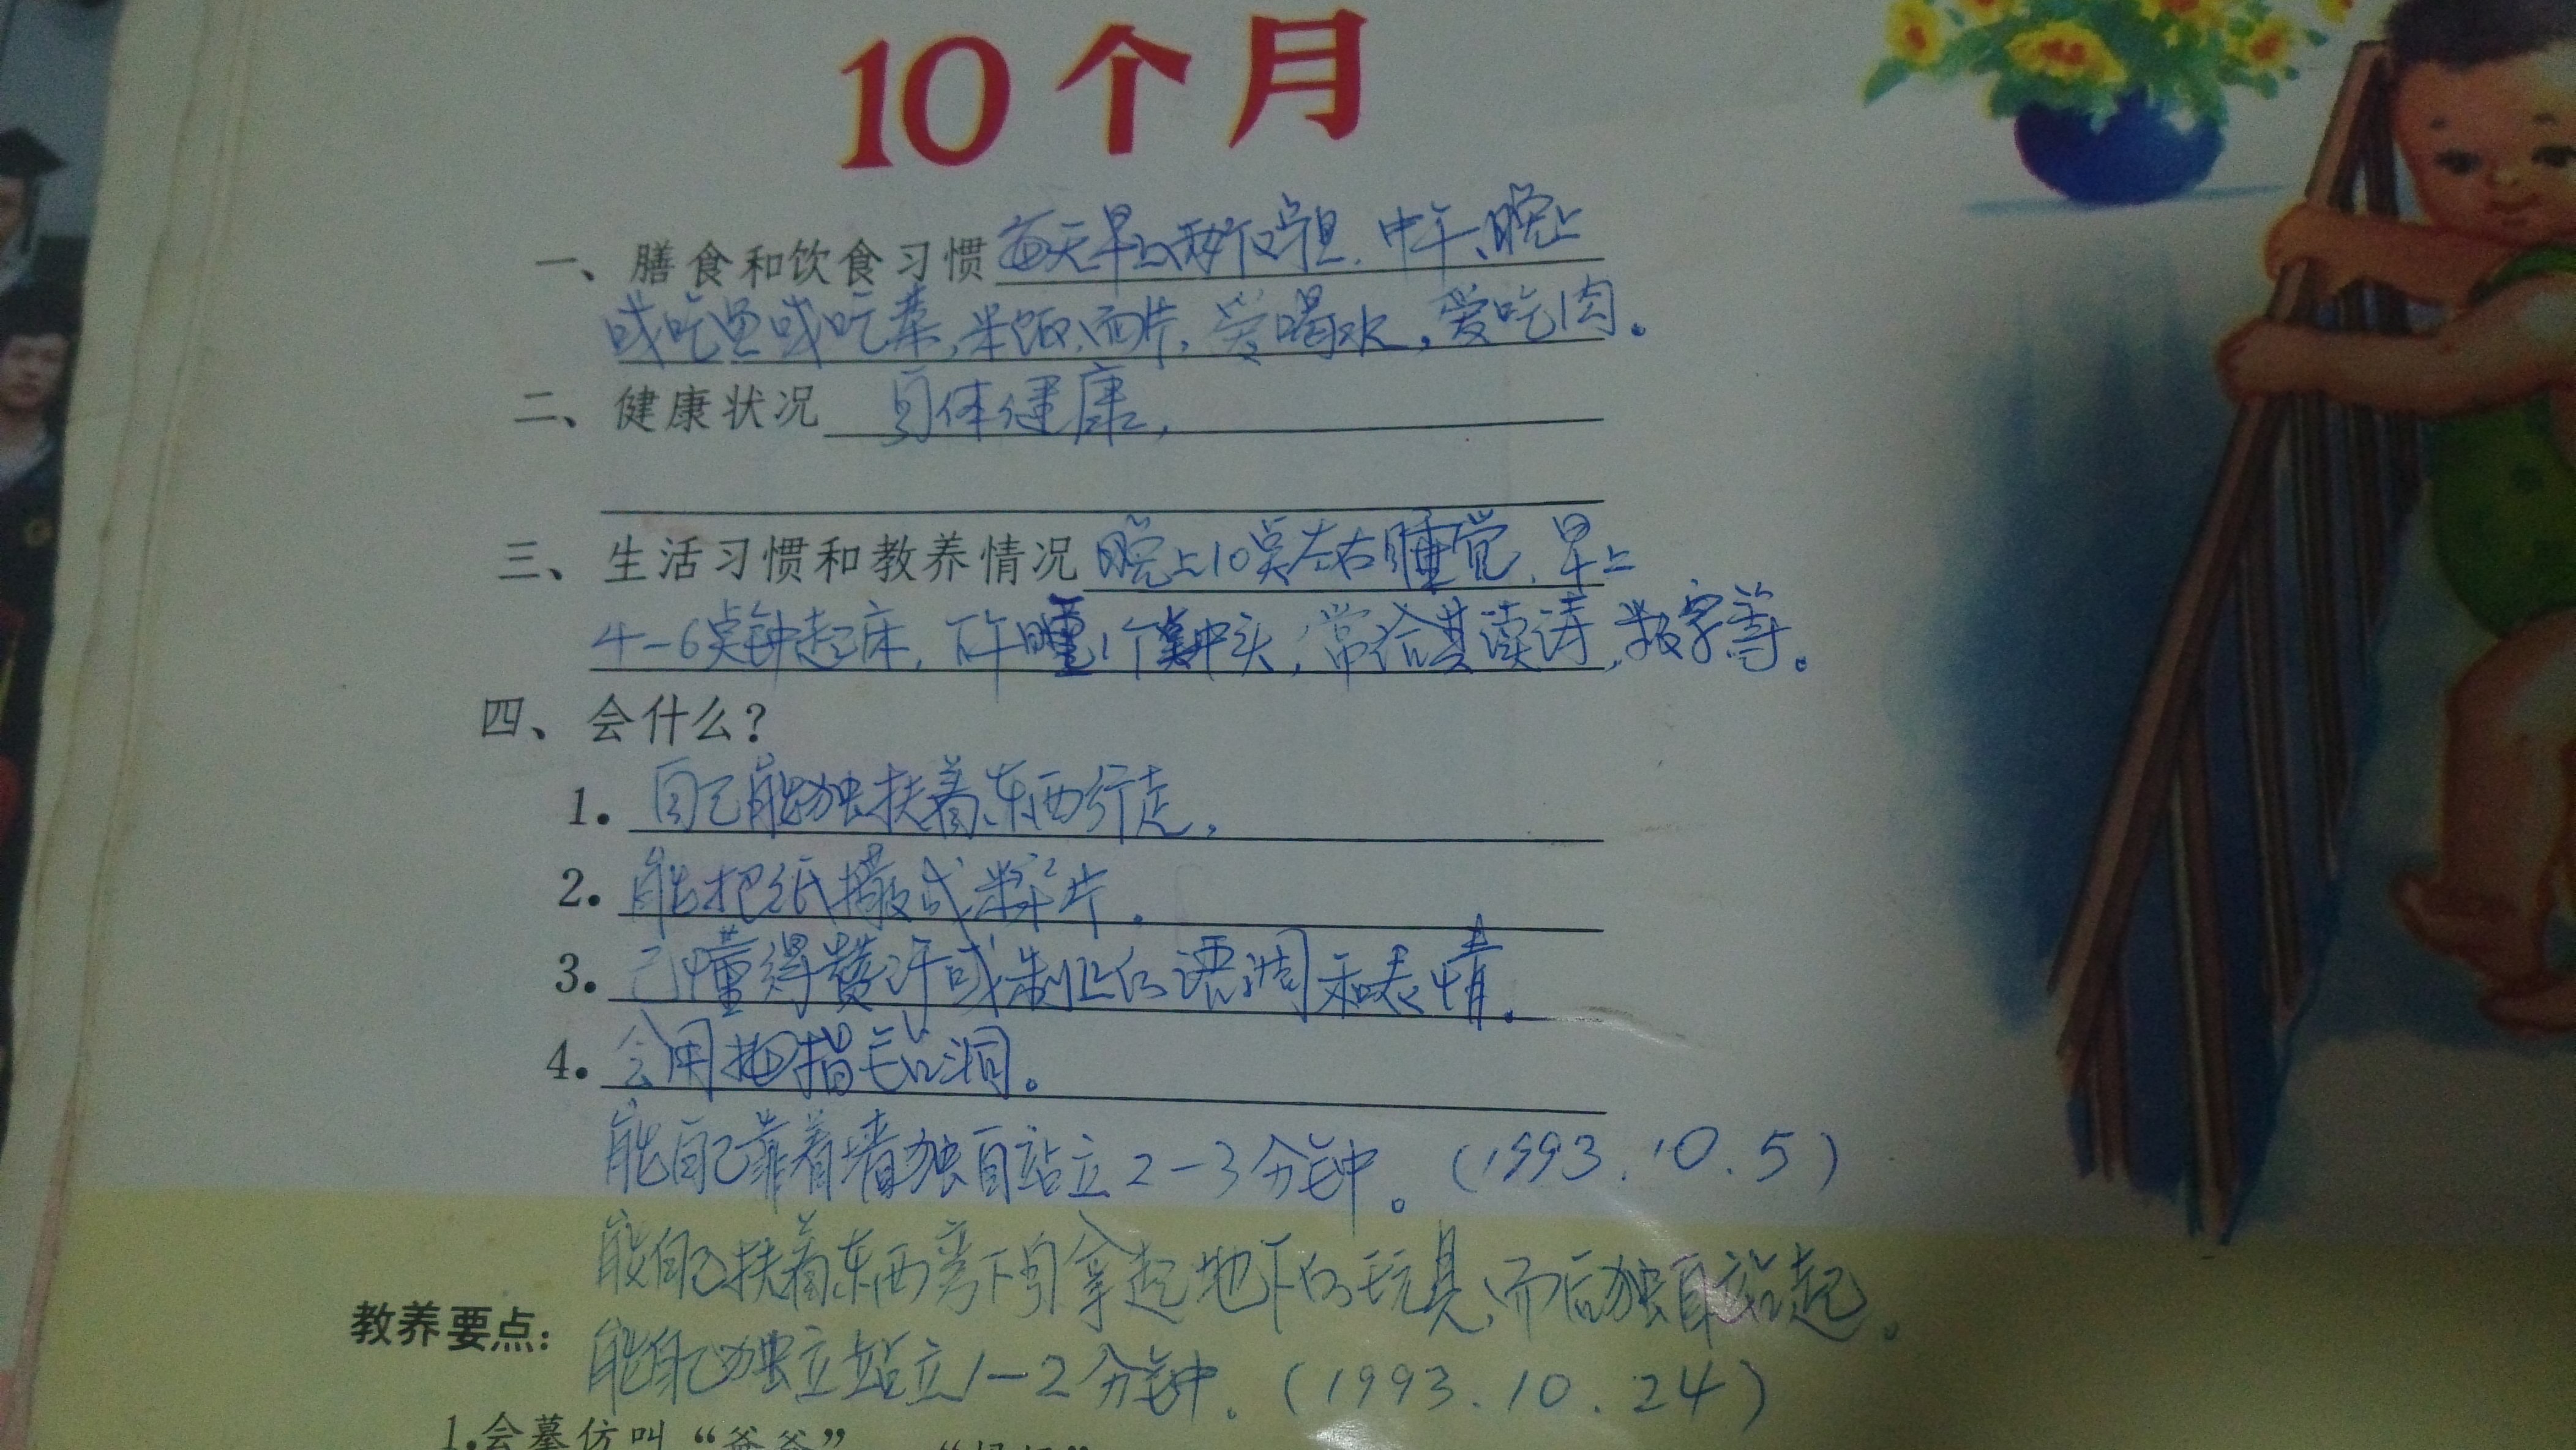 10个月
一、膳食和饮食习惯 每天早上两个鸡蛋.中午、晚上
或吃鱼或吃菜,米饭、面片,爱喝水,爱吃肉。
二、健康状况 身体健康,
三、生活习惯和教养情况 晚上10点左右睡觉,早上
4-6点钟起床,下午睡1个多钟头,常给其读诗,数字等。
四、会什么?
1. 自己能独扶着东西行走,
2. 能把纸撒成碎片.
3. 已懂得赞许或制止的语调和表情.
4. 会用拇指钻洞。
能自己靠着墙独自站立2-3分钟。(1993.10.5)
能自己扶着东西弯下身拿起地下的玩具,而后独自站起。
教养要点:
能自己独立站立1-2分钟.(1993.10.24)
1.会摹仿叫“爸爸”